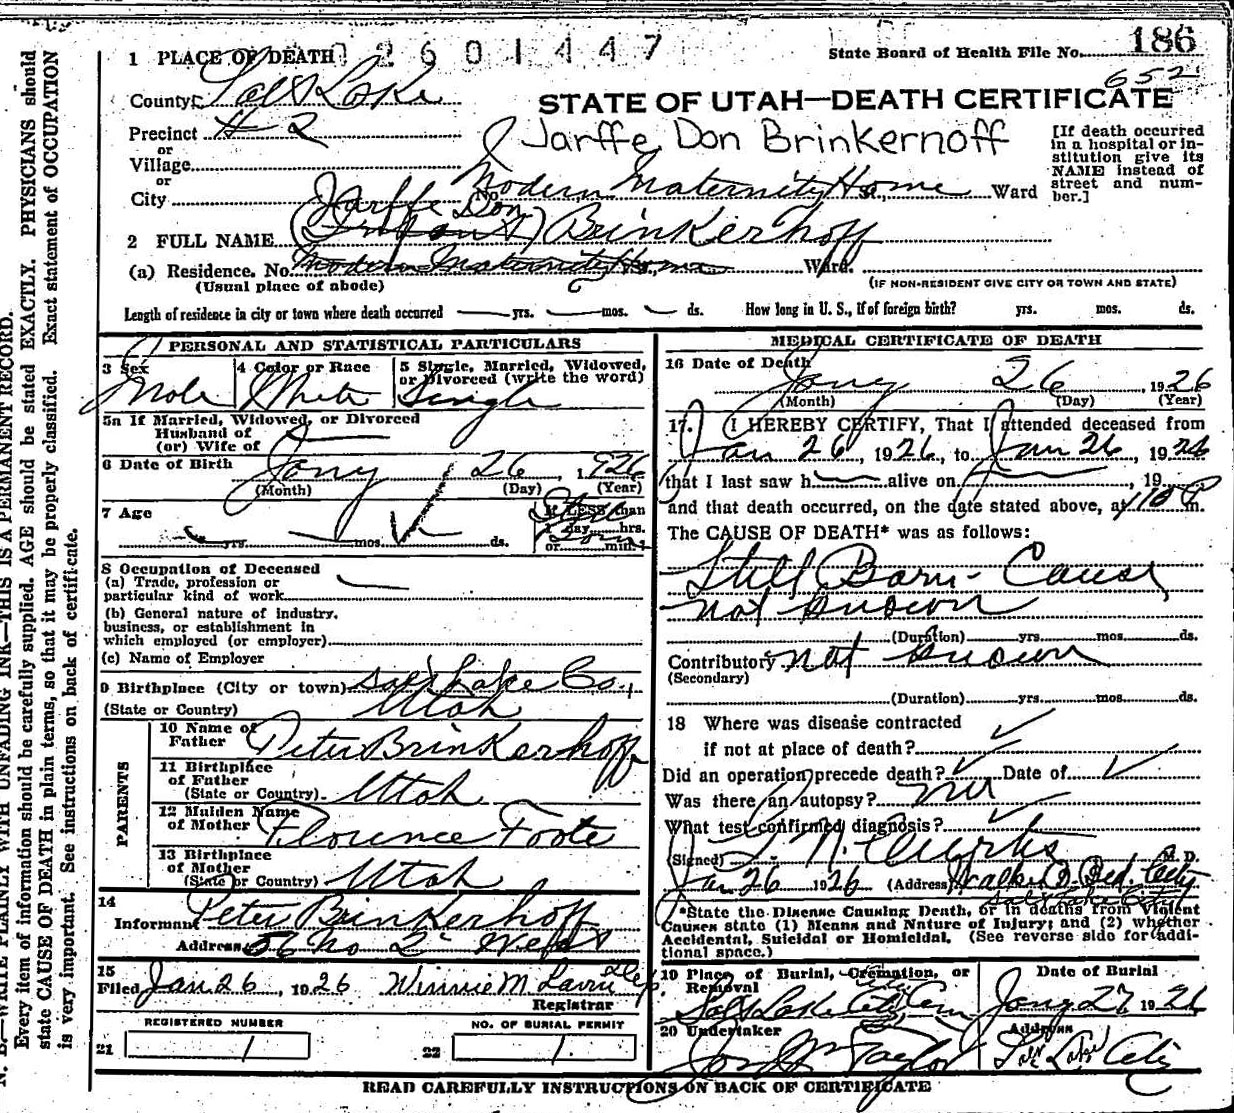 2601447
State Board of Health File No. 186
652
1 PLACE OF DEATH
County Salt Lake
STATE OF UTAH—DEATH CERTIFICATE
Precinct # 2
Jarffe Don Brinkerhoff
[If death occurred in a hospital or institution give its NAME instead of street and number.]
or
Village
or
City No. Modern Maternity Home St., Ward
Jarffe Don
2 FULL NAME (Infant) Brinkerhoff
(a) Residence. No. Modern Maternity Home St., Ward.
(Usual place of abode) (IF NON-RESIDENT GIVE CITY OR TOWN AND STATE)
Length of residence in city or town where death occurred yrs. mos. ds. How long in U. S., if of foreign birth? yrs. mos. ds.
PERSONAL AND STATISTICAL PARTICULARS
3 Sex Male
4 Color or Race White
5 Single, Married, Widowed, or Divorced (write the word) Single
5a If Married, Widowed, or Divorced
Husband of
(or) Wife of
6 Date of Birth Jany 26, 1926
(Month) (Day) (Year)
7 Age yrs. mos. ds.
If LESS than
day hrs.
or min.
Still Born
8 Occupation of Deceased
(a) Trade, profession or
particular kind of work
(b) General nature of industry,
business, or establishment in
which employed (or employer)
(c) Name of Employer
9 Birthplace (City or town) Salt Lake Co.,
(State or Country) Utah
PARENTS
10 Name of Father Peter Brinkerhoff
11 Birthplace of Father (State or Country) Utah
12 Maiden Name of Mother Florence Foote
13 Birthplace of Mother (State or Country) Utah
14
Informant Peter Brinkerhoff
Address 56 No 2 West
15
Filed Jan 26, 1926 Winnie M Dep
Registrar
REGISTERED NUMBER
21 1
NO. OF BURIAL PERMIT
22 1
MEDICAL CERTIFICATE OF DEATH
16 Date of Death Jany 26 1926
(Month) (Day) (Year)
17 I HEREBY CERTIFY, That I attended deceased from
Jan 26, 1926, to Jan 26, 1926
that I last saw h alive on , 19
and that death occurred, on the date stated above, at 110 P m.
The CAUSE OF DEATH* was as follows:
Still Born - Cause
not known
(Duration) yrs. mos. ds.
Contributory not known
(Secondary)
(Duration) yrs. mos. ds.
18 Where was disease contracted
if not at place of death?
Did an operation precede death? Date of
Was there an autopsy? no
What test confirmed diagnosis?
(Signed) N. Curtis M. D.
Jan 26 1926 (Address) Walker Bldg. City
Salt Lake City
*State the Disease Causing Death, or in deaths from Violent
Causes state (1) Means and Nature of Injury; and (2) whether
Accidental, Suicidal or Homicidal. (See reverse side for additional space.)
19 Place of Burial, Cremation, or Removal
Salt Lake City Cem
Date of Burial
Jany 27 1926
20 Undertaker Taylor
Address Salt Lake City
READ CAREFULLY INSTRUCTIONS ON BACK OF CERTIFICATE
N. B.—WRITE PLAINLY WITH UNFADING INK—THIS IS A PERMANENT RECORD.
Every item of information should be carefully supplied. AGE should be stated EXACTLY. PHYSICIANS should
state CAUSE OF DEATH in plain terms, so that it may be properly classified. Exact statement of OCCUPATION
is very important. See instructions on back of certificate.